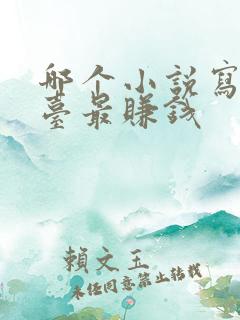 哪个小说寫
臺最賺钱
賴文玉
未经同意禁止转载